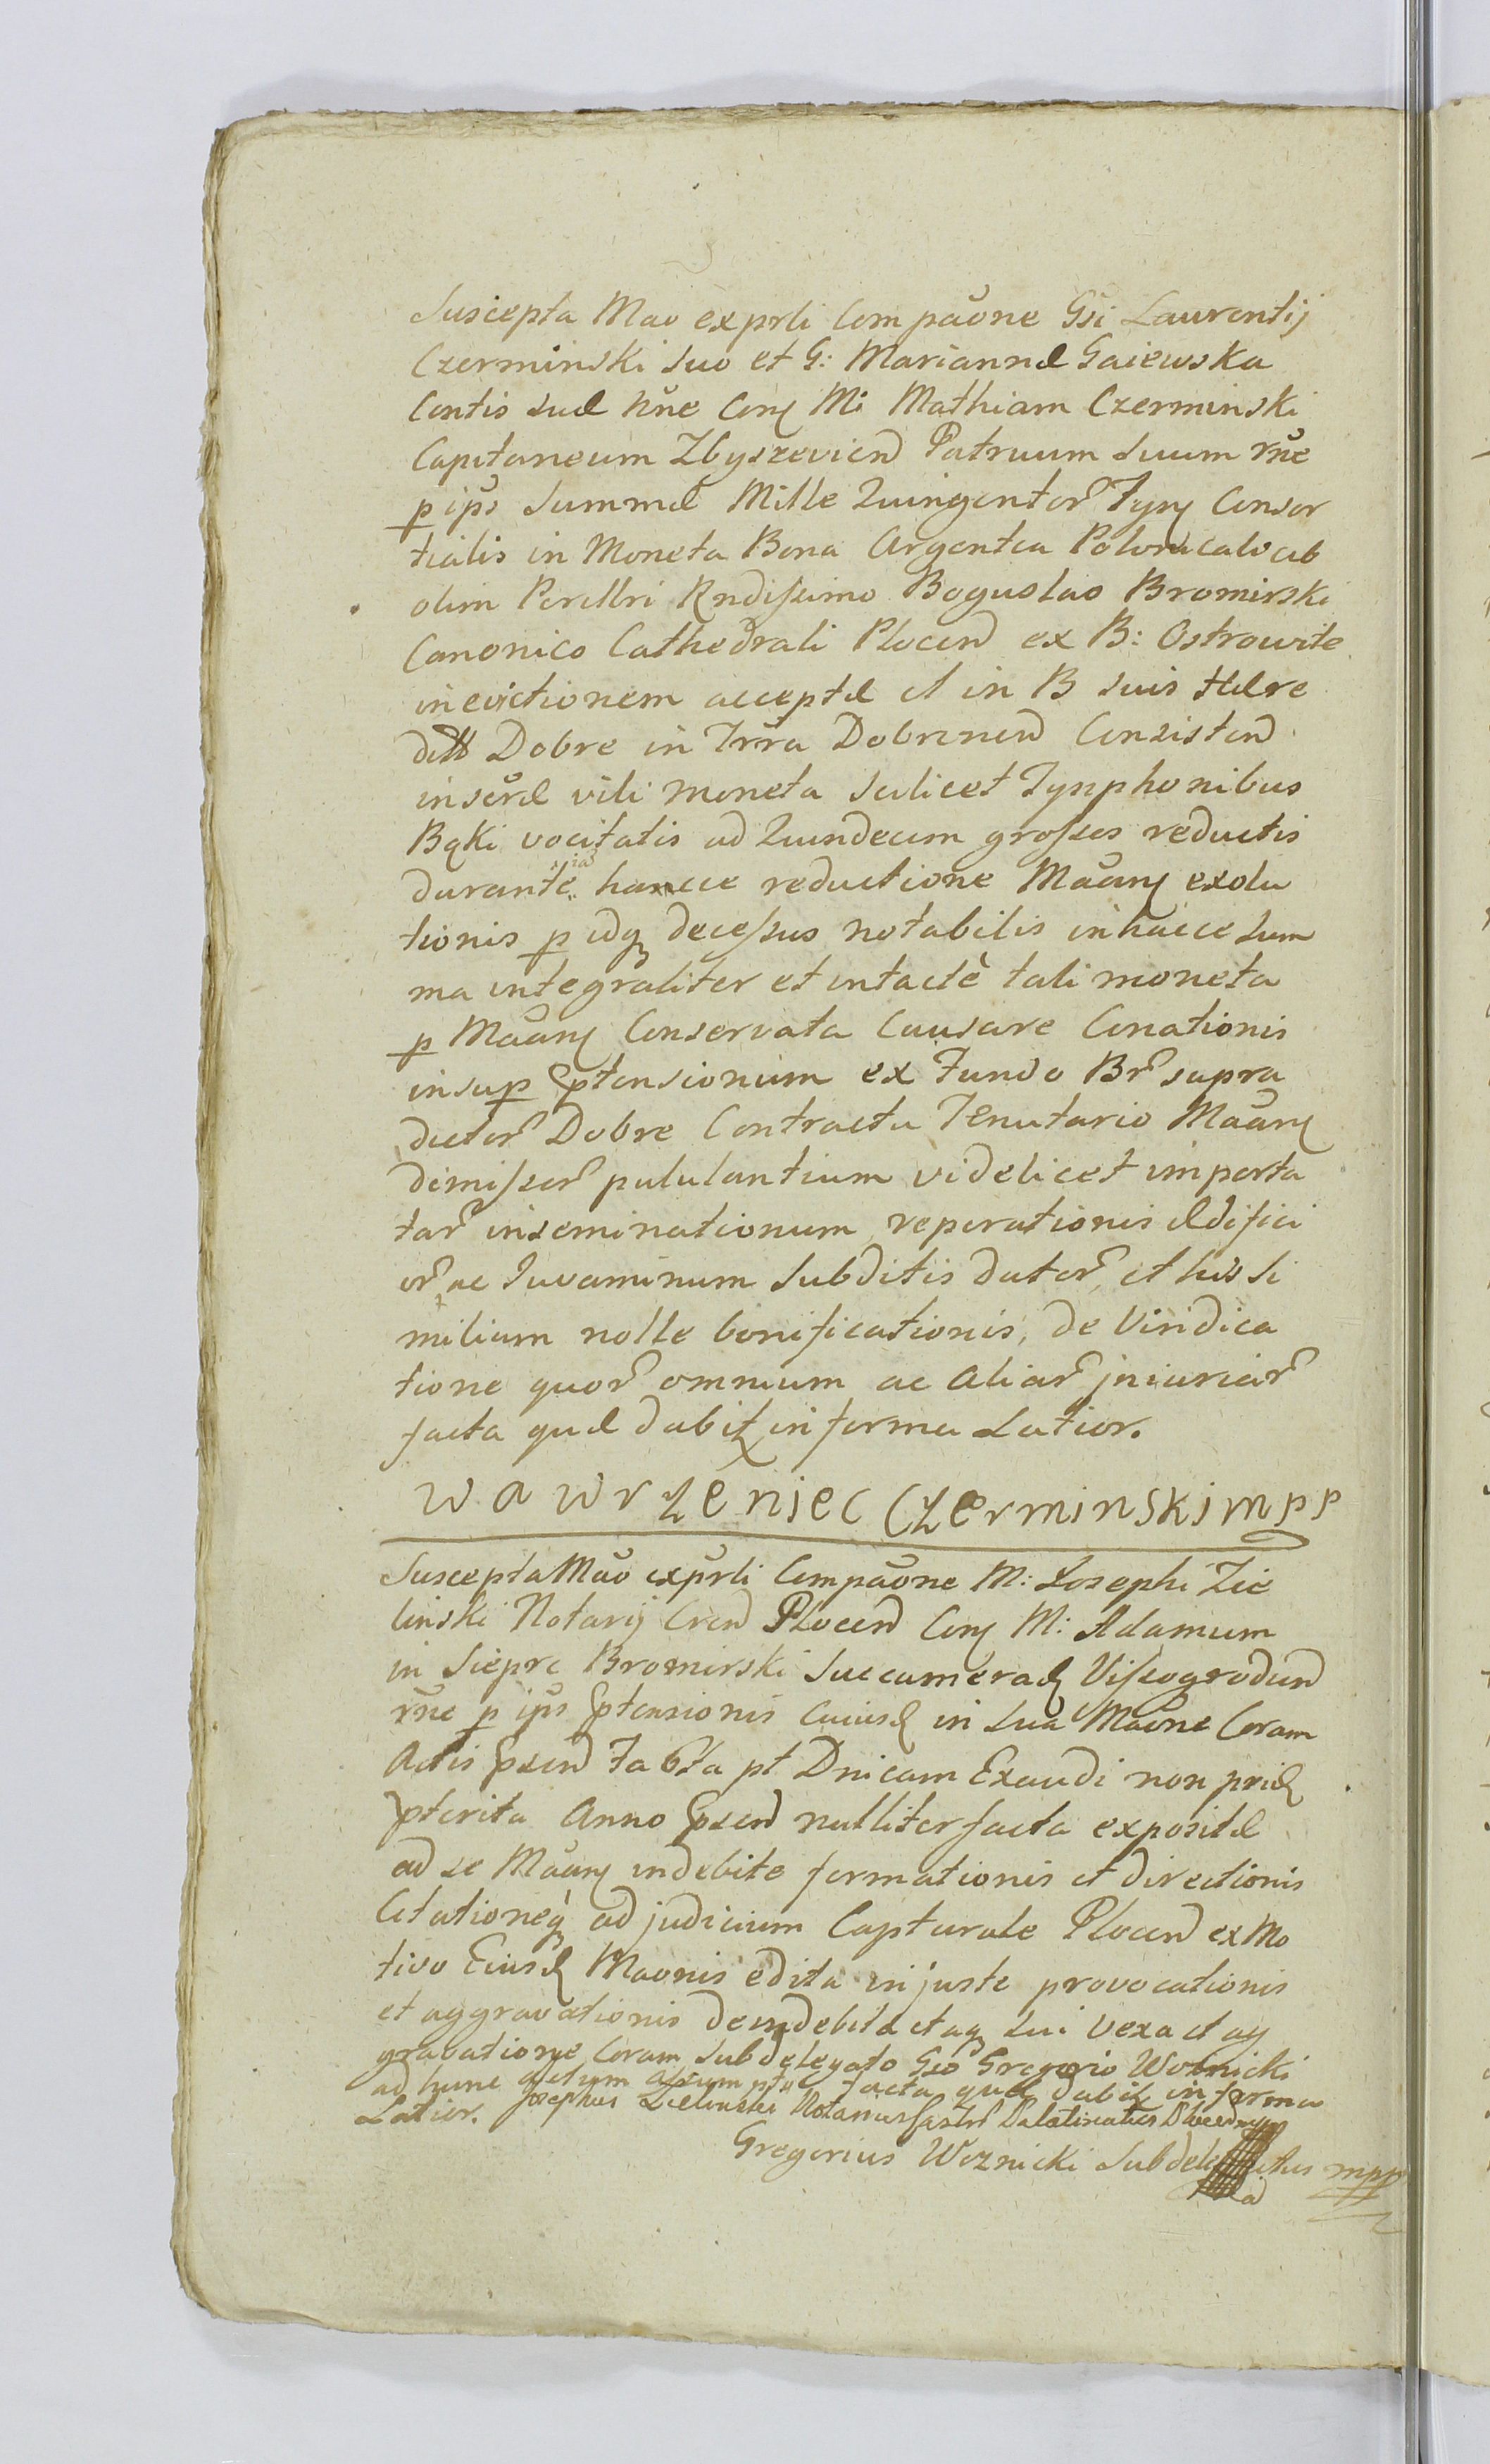 Suscepta Mao exprli Compaōne Gsi Laurentij
Czerminski suo et G: Mariannæ Gaiewska
Contis suæ nūe Con M: Mathiam Czerminski
Capitaneum Zbyszevien Patruum suum rñe
p ips Summæ Mille Quingentor Tyn Consor
tialis in Moneta Bona Argentea Polonicalo ab
olim Perllri Rndissimo Boguslao Bromirski
Canonico Cathedrali Plocen ex B: Ostrowite
in evictionem acceptæ et in B suis Hære
ditt Dobre in Trra Dobrinen Consisten
inscræ vili moneta scilicet Tynphonibus
Bąki vocitatis ad Quindecim grosses reductis
durante hancce reductione Māōnj exolu
tionis p idq decessus notabilis in haicce sum
ma integraliter et intactè tali moneta
p Māōnj Conservata Causare Conationis
insup ptensionum ex Fundo Br supra
dictor Dobre Contractu Tenutario Māōnj
dimissor pululantium videlicet importa
tar inseminationum reperationis ædifici
or ac Iuvaminum Subditis dator et his si
milium nolle bonificationis, de Vindica
tione quor omnium ac aliar jniuriar
facta quæ dabit in forma Latior.
Wawrzeniec Czerminski mpp
Suscepta Mao exprli Compaōne M: Iosephi Zie
linski Notarij Cren Plocen Con M: Adamum
in Siepre Bromirski Succamerad Vissogroduen
rñe p ips ptensionis Cuiusd in sua Maone Coram
Actis psen Fabta pt Dnicam Exaudi non prid
pterita Anno psen nulliter facta expositæ
ad se Māōnj indebite formationis et directionis
Citationeq ad judicium Capturale Plocen ex Mo
tivo Eiusd Maonis edita injuste provocationis
et aggravationis de indebita etaq sui vexa et ag
gravatione Coram Subdelegato Gso Gregorio Woznicki
ad hunc actum assumpto facta quæ dabit in forma
Latior. Josephus Zielinski Notarius Castr Palatinatus Plocen mpp
Gregorius Woznicki Subdelegatus mpp